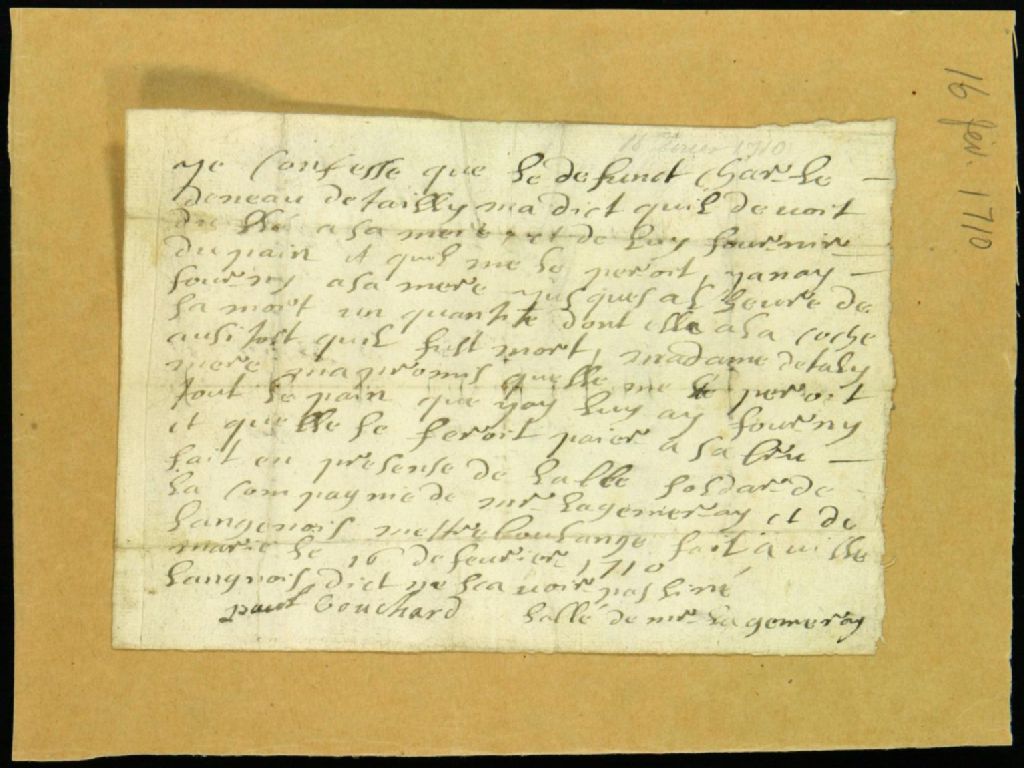 16 fév. 1710
16 février 1710
Je Confesse que le defunct Char le
deneau detailly ma dict quil devoit
du blé a sa mere et de luy fournir
du pain et quil me le peroit, janay
fourny a sa mere jusques a lheure de
sa mort un quantite dont elle a la coche
ausitost quil fust mort, madame detaly
mere ma promis quelle me le peroit
tout le pain que jay luy ay fourny
et quelle le feroit paier a sa
fait en presense de lalle soldar de
la compaynie de mr. lagemeray et de
langenois mettre boulange fait a ville
marie le 16 de feurier 1710
langnois dict ne scavoir pas siné
paul bouchard lallé de mr. lagemeray